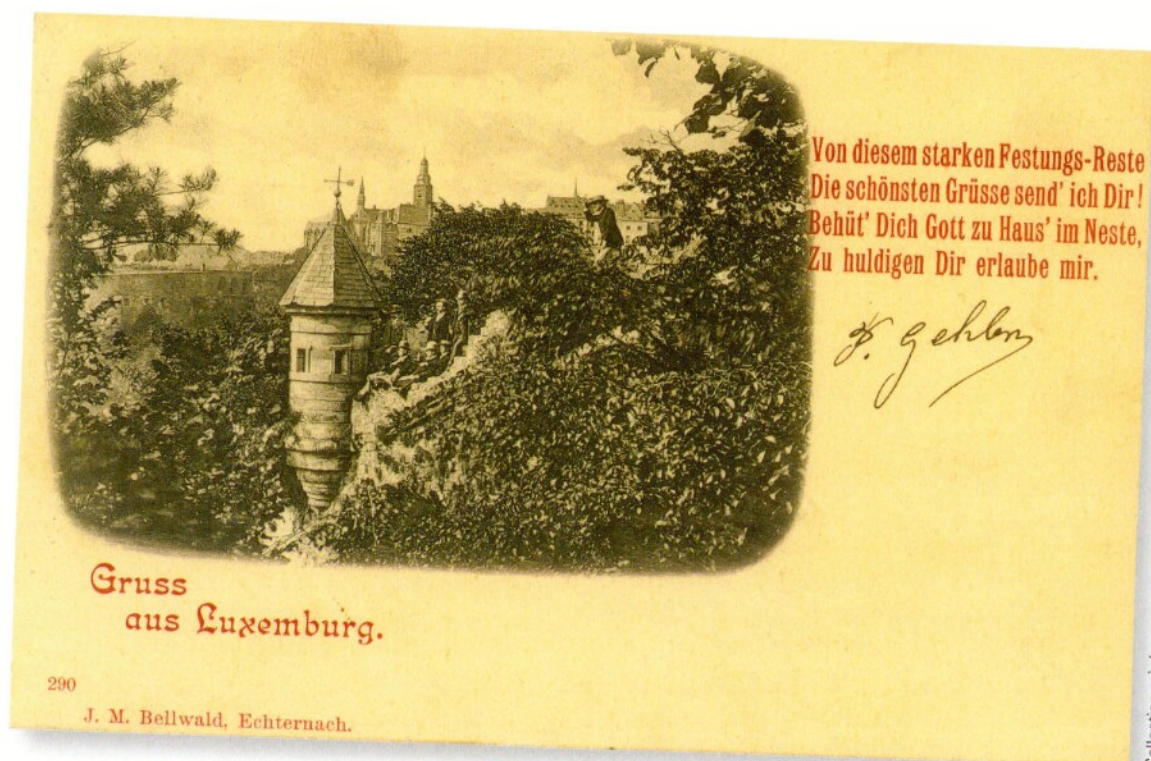 Von diesem starken Festungs-Reste
Die schönsten Grüsse send' ich Dir!
Behüt' Dich Gott zu Haus' im Neste,
Zu huldigen Dir erlaube mir.
Gehlen
Gruss
aus Luxemburg.
290
J. M. Bellwald, Echternach.